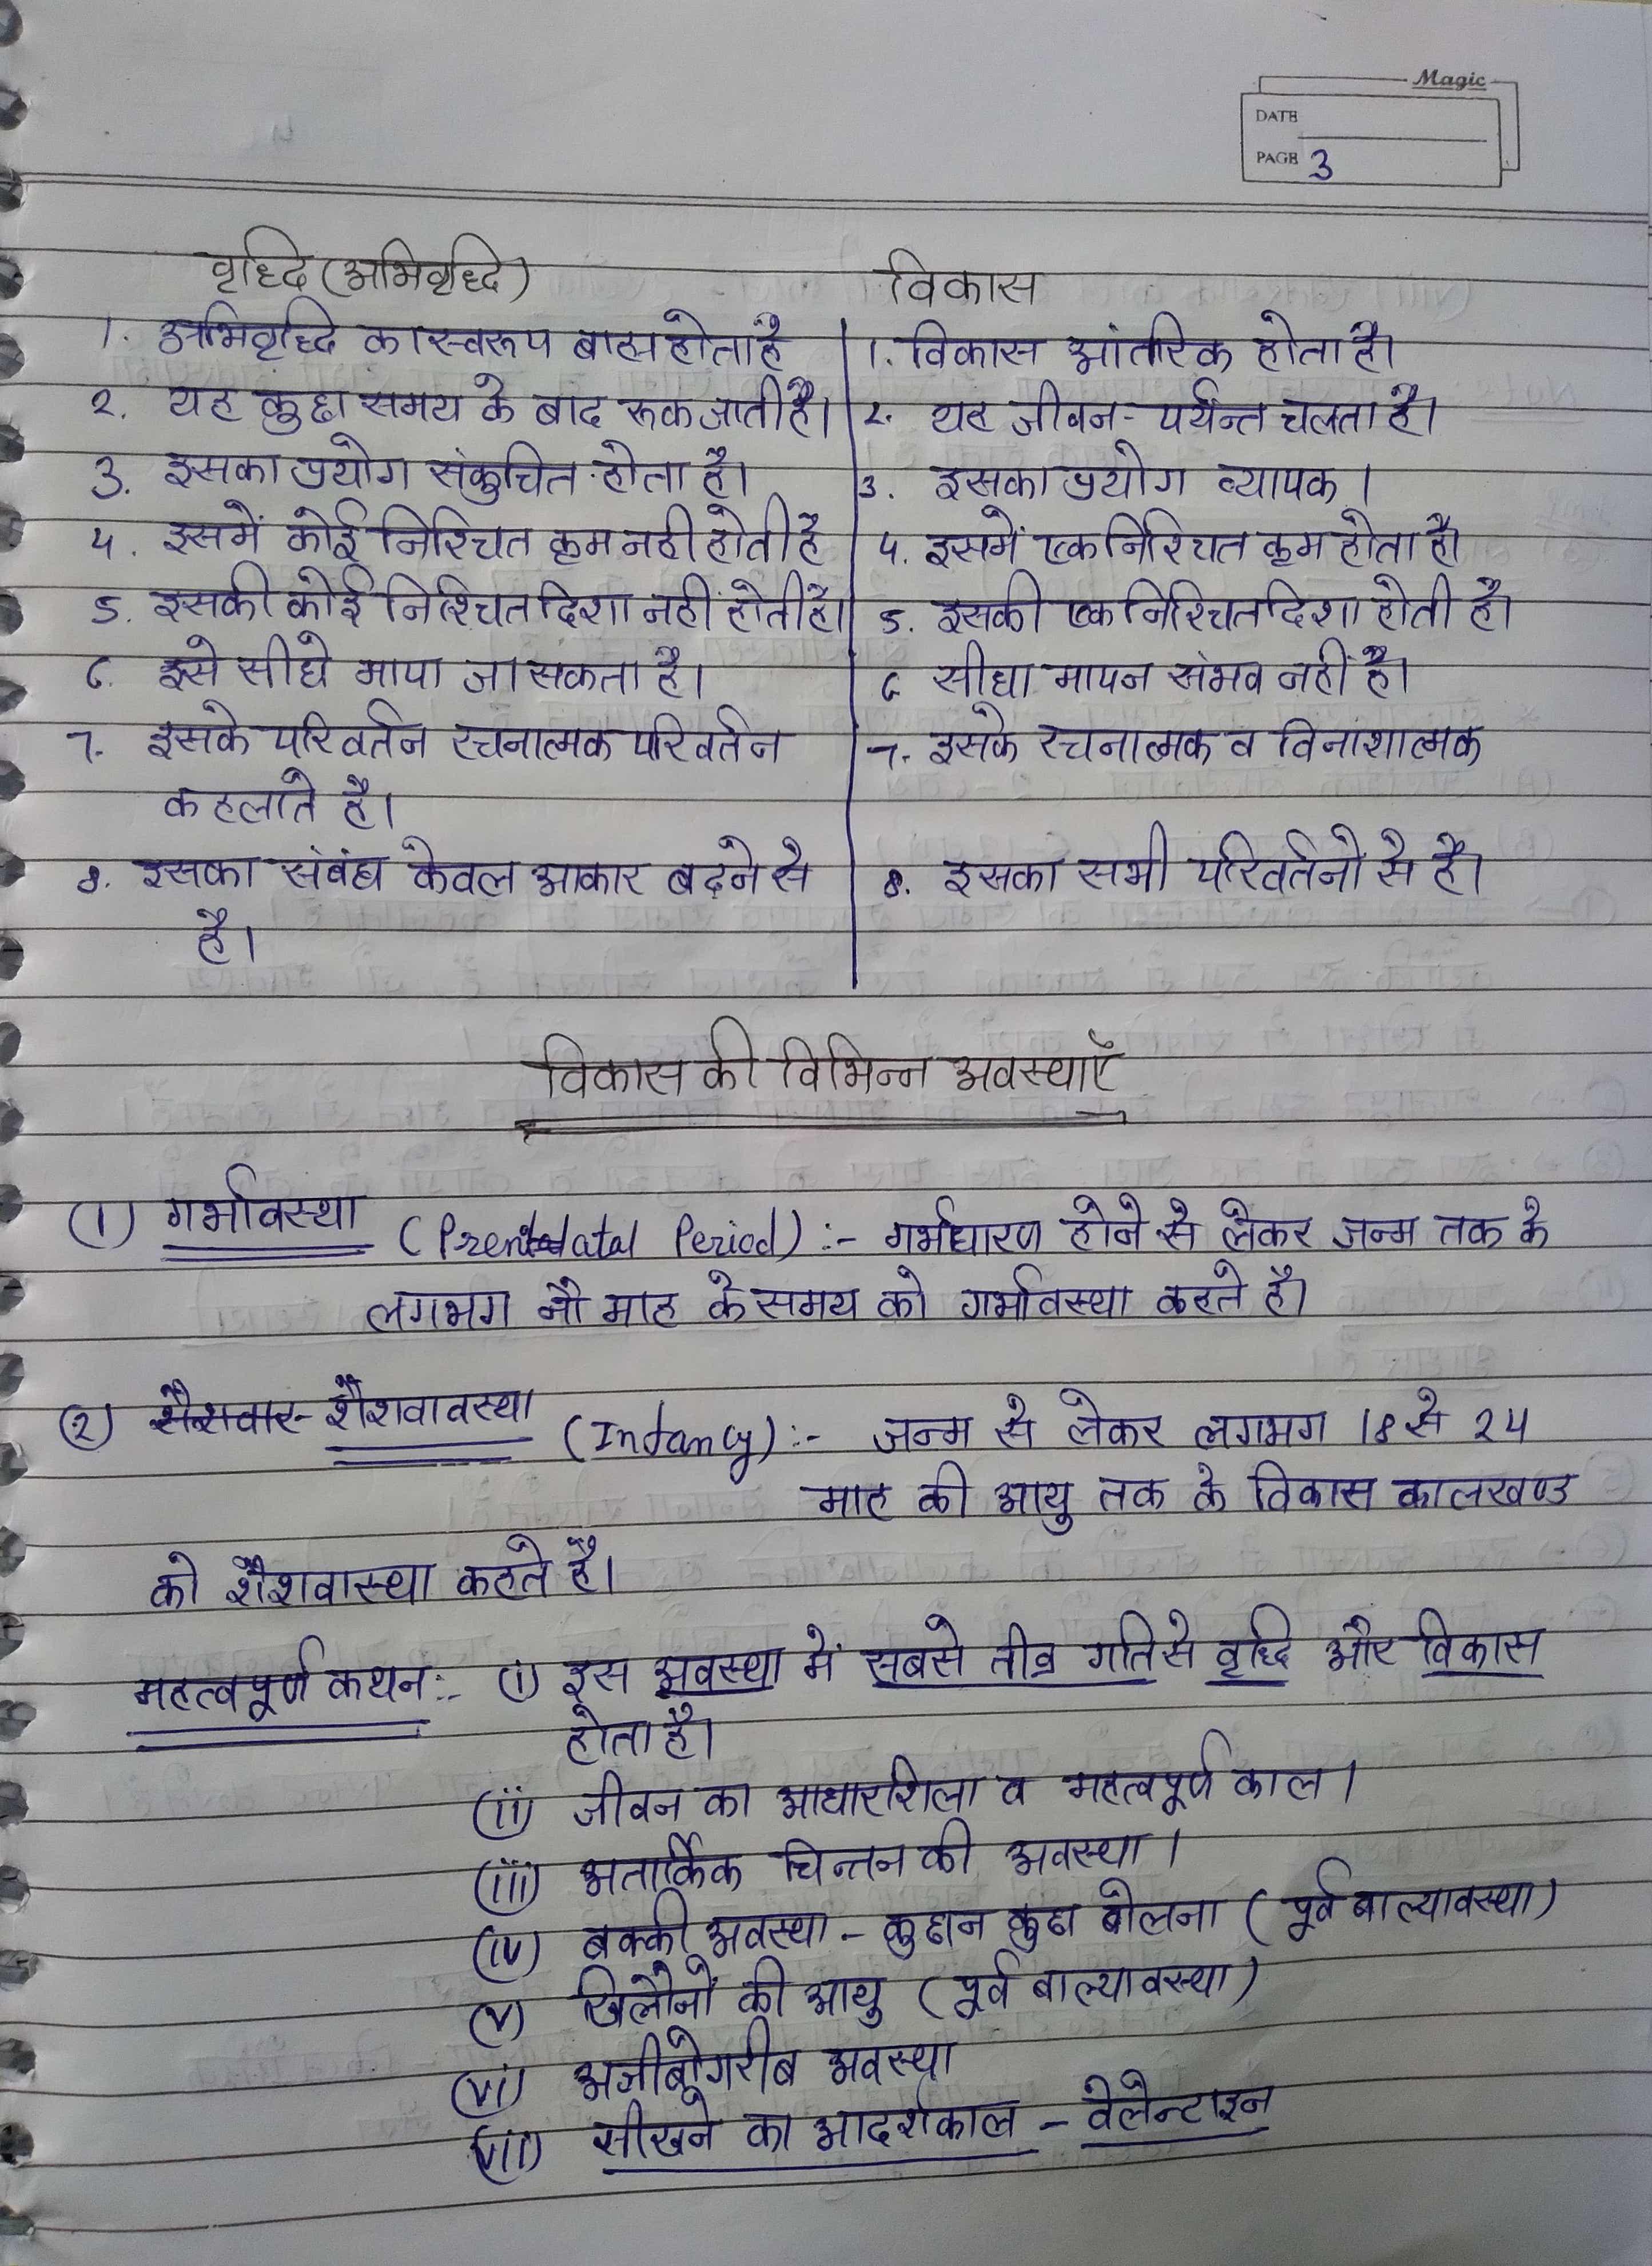 Magic
DATE
PAGE 3
वृध्दि (अभिवृध्दि) विकास
1. अभिवृध्दि का स्वरूप बाह्य होता है 1. विकास आंतरिक होता है।
2. यह कुछ समय के बाद रूक जाती है। 2. यह जीवन-पर्यन्त चलता है।
3. इसका प्रयोग संकुचित होता है। 3. इसका प्रयोग व्यापक।
4. इसमें कोई निश्चित क्रम नही होती है 4. इसमें एक निश्चित क्रम होता है।
5. इसकी कोई निश्चित दिशा नहीं होती है। 5. इसकी एक निश्चित दिशा होती है।
6. इसे सीधे मापा जा सकता है। 6 सीधा मापन संभव नहीं है।
7. इसके परिवर्तन रचनात्मक परिवर्तन 7. इसके रचनात्मक व विनाशात्मक
कहलाते है।
8. इसका संबंध केवल आकार बढ़ने से 8. इसका सभी परिवर्तनो से है।
है।
विकास की विभिन्न अवस्थाएँ
(1) गर्भावस्था (Period) :- गर्भधारण होने से लेकर जन्म तक के
लगभग नौ माह के समय को गर्भावस्था कहते है।
(2) शैशवावस्था (Infancy) :- जन्म से लेकर लगभग 18 से 24
माह की आयु तक के विकास कालखण्ड
को शैशवास्था कहते है।
महत्वपूर्ण कथन :- (i) इस अवस्था में सबसे तीव्र गति से वृध्दि और विकास
होता है।
(ii) जीवन का आधारशिला व महत्वपूर्ण काल।
(iii) अतार्किक चिन्तन की अवस्था।
(iv) बक्की अवस्था - कुछ न कुछ बोलना (पूर्व बाल्यावस्था)
(v) खिलौनों की आयु (पूर्व बाल्यावस्था)
(vi) अजीबोगरीब अवस्था
(vii) सीखने का आदर्शकाल - वेलेन्टाइन